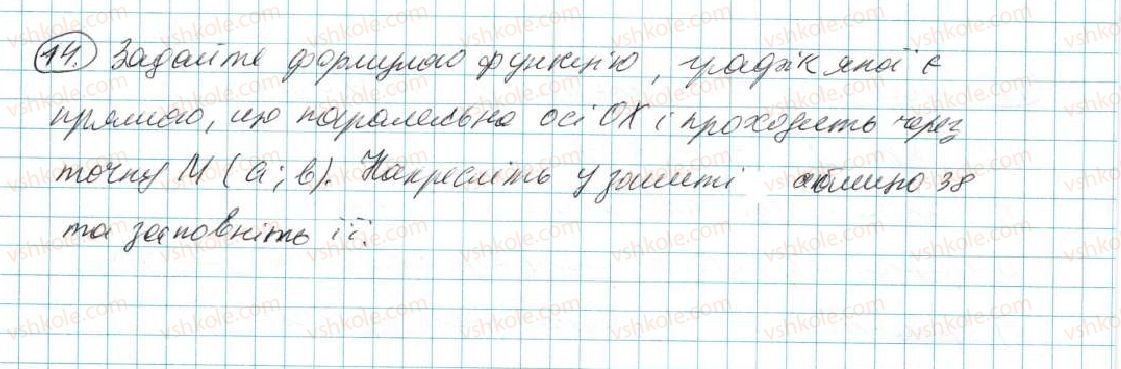 14. Задайте формулою функцію, графік якої є
прямою, що паралельна осі OX і проходить через
точку M (a; b). Накресліть у зошиті аблицю 38
та заповніть її.